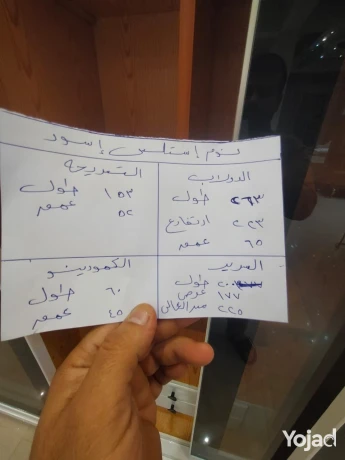 نوم إستلس إسود
الدولاب
طول ٢٦٣
ارتفاع ٢٢٣
عمق ٦٥
التسريحه
طول ١٥٣
عمق ٥٢
السرير
طول ٢٠٠
عرض ١٧٧
عرض ٢٢٥
الكمودينو
طول ٦٠
عمق ٤٥
Yojad